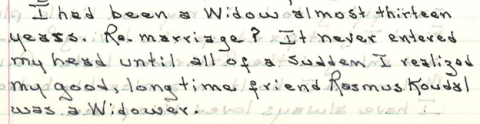 I had been a Widow almost thirteen
years. Re-marriage? It never entered
my head until all of a sudden I realized
my good, long time friend Rasmus Koudal
was a Widower.